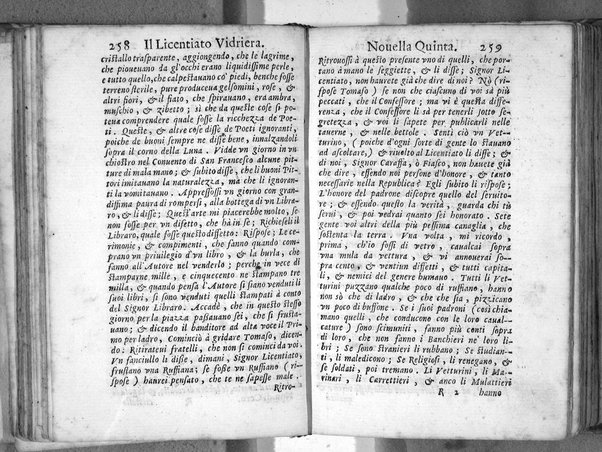 258 Il Licentiato Vidriera.
cristallo trasparente, aggiongendo, che le lagrime,
che pioueuano da gl'occhi erano liquidissime perle,
e tutto quello, che calpestauano co' piedi, benche fosse
terreno sterile, pure produceua gelsomini, rose, &
altri fiori, & il fiato, che spirauano, era ambra,
muschio, & zibetto; sì che da queste cose si po-
teua comprendere quale fosse la ricchezza de Poe-
ti. Queste, & altre cose disse de Poeti ignoranti,
poiche de buoni sempre ne disse bene, inalzandoli
sopra il corno della Luna. Vidde vn giorno in vn
chiostro nel Conuento di San Francesco alcune pit-
ture di mala mano; & subito disse, che li buoni Pit-
tori imitauano la naturalezza, ma che li ignoran-
ti la vomitauano. Appressossi vn giorno con gran-
dissima paura di rompersi, alla bottega di vn Libra-
ro, & li disse; Quest'arte mi piacerebbe molto, se
non fosse per vn difetto, che hà in se; Richieseli il
Libraro, quale fosse questo difetto: Rispose; Le ce-
rimonie, & compimenti, che fanno quando com-
prano vn priuilegio d'vn libro, & la burla, che
fanno all'Autore nel venderlo; perche in vece di
stamparne mille, e cinquecento ne stampano tre
milla, & quando pensa l'Autore si siano venduti li
suoi libri, si sono venduti quelli stampati à conto
del Signor Libraro. Accadè, che in questo stesso
giorno, per la piazza passauano sei, che si frusta-
uano; & dicendo il banditore ad alta voce il Pri-
mo per ladro, Cominciò à gridare Tomaso, dicen-
do: Ritirateui fratelli, che non si cominci da voi.
Vn fanciullo li disse, dimani, Signor Licentiato,
frustano vna Ruffiana; se fosse vn Ruffiano (ri-
spose) haurei pensato, che te ne sapesse male.
Ritro-
Nouella Quinta. 259
Ritrouossi à questo presente vno di quelli, che por-
tano à mano le seggiette, & li disse; Signor Li-
centiato, non hauerete già che dire di noi? Nò (ri-
spose Tomaso) se non che ciascuno di voi sà più
peccati, che il Confessore; ma vi è questa diffe-
renza, che il Confessore li sà per tenerli sotto se-
gretezza, & voi li sapete per publicarli nelle
tauerne, & nelle bettole. Sentì ciò vn Vet-
turino, (poiche d'ogni sorte di gente lo stauano
ad ascoltare,) & riuolto al Licentiato li disse; &
di noi, Signor Caraffa, ò Fiasco, non hauete già
che dire, essendo noi persone d'honore, & tanto
necessarie nella Republica? Egli subito li rispose;
L'honore del padrone discopre quello del seruito-
re; & essendo questo la verità, guarda chi tù
serui, & poi vedrai quanto sei honorato. Sete
gente voi altri della più pessima canaglia, che
sostenta la terra. Vna volta, mi ricordo,
prima, ch'io fossi di vetro, caualcai sopra
vna mula da vettura, & vi annouerai so-
pra cento, & ventiun difetti, & tutti capita-
li, & nemici del genere humano. Tutti li Vet-
turini puzzano qualche poco di ruffiano, hanno
non sò che di ladro, & che che sia, pizzicano
vn poco di buffone. Se i suoi padroni (così chia-
mano quelli, che conducono con le loro caual-
cature) sono scimuniti, fanno più conti sopra
di loro, che non fanno i Banchieri ne' loro li-
bri; Se sono stranieri li rubbano; Se studian-
ti, li maledicono; Se Religiosi, li renegano, &
se soldati, poi tremano. Li Vetturini, li Ma-
rinari, li Carrettieri, & anco li Mulattieri
R 2 hanno